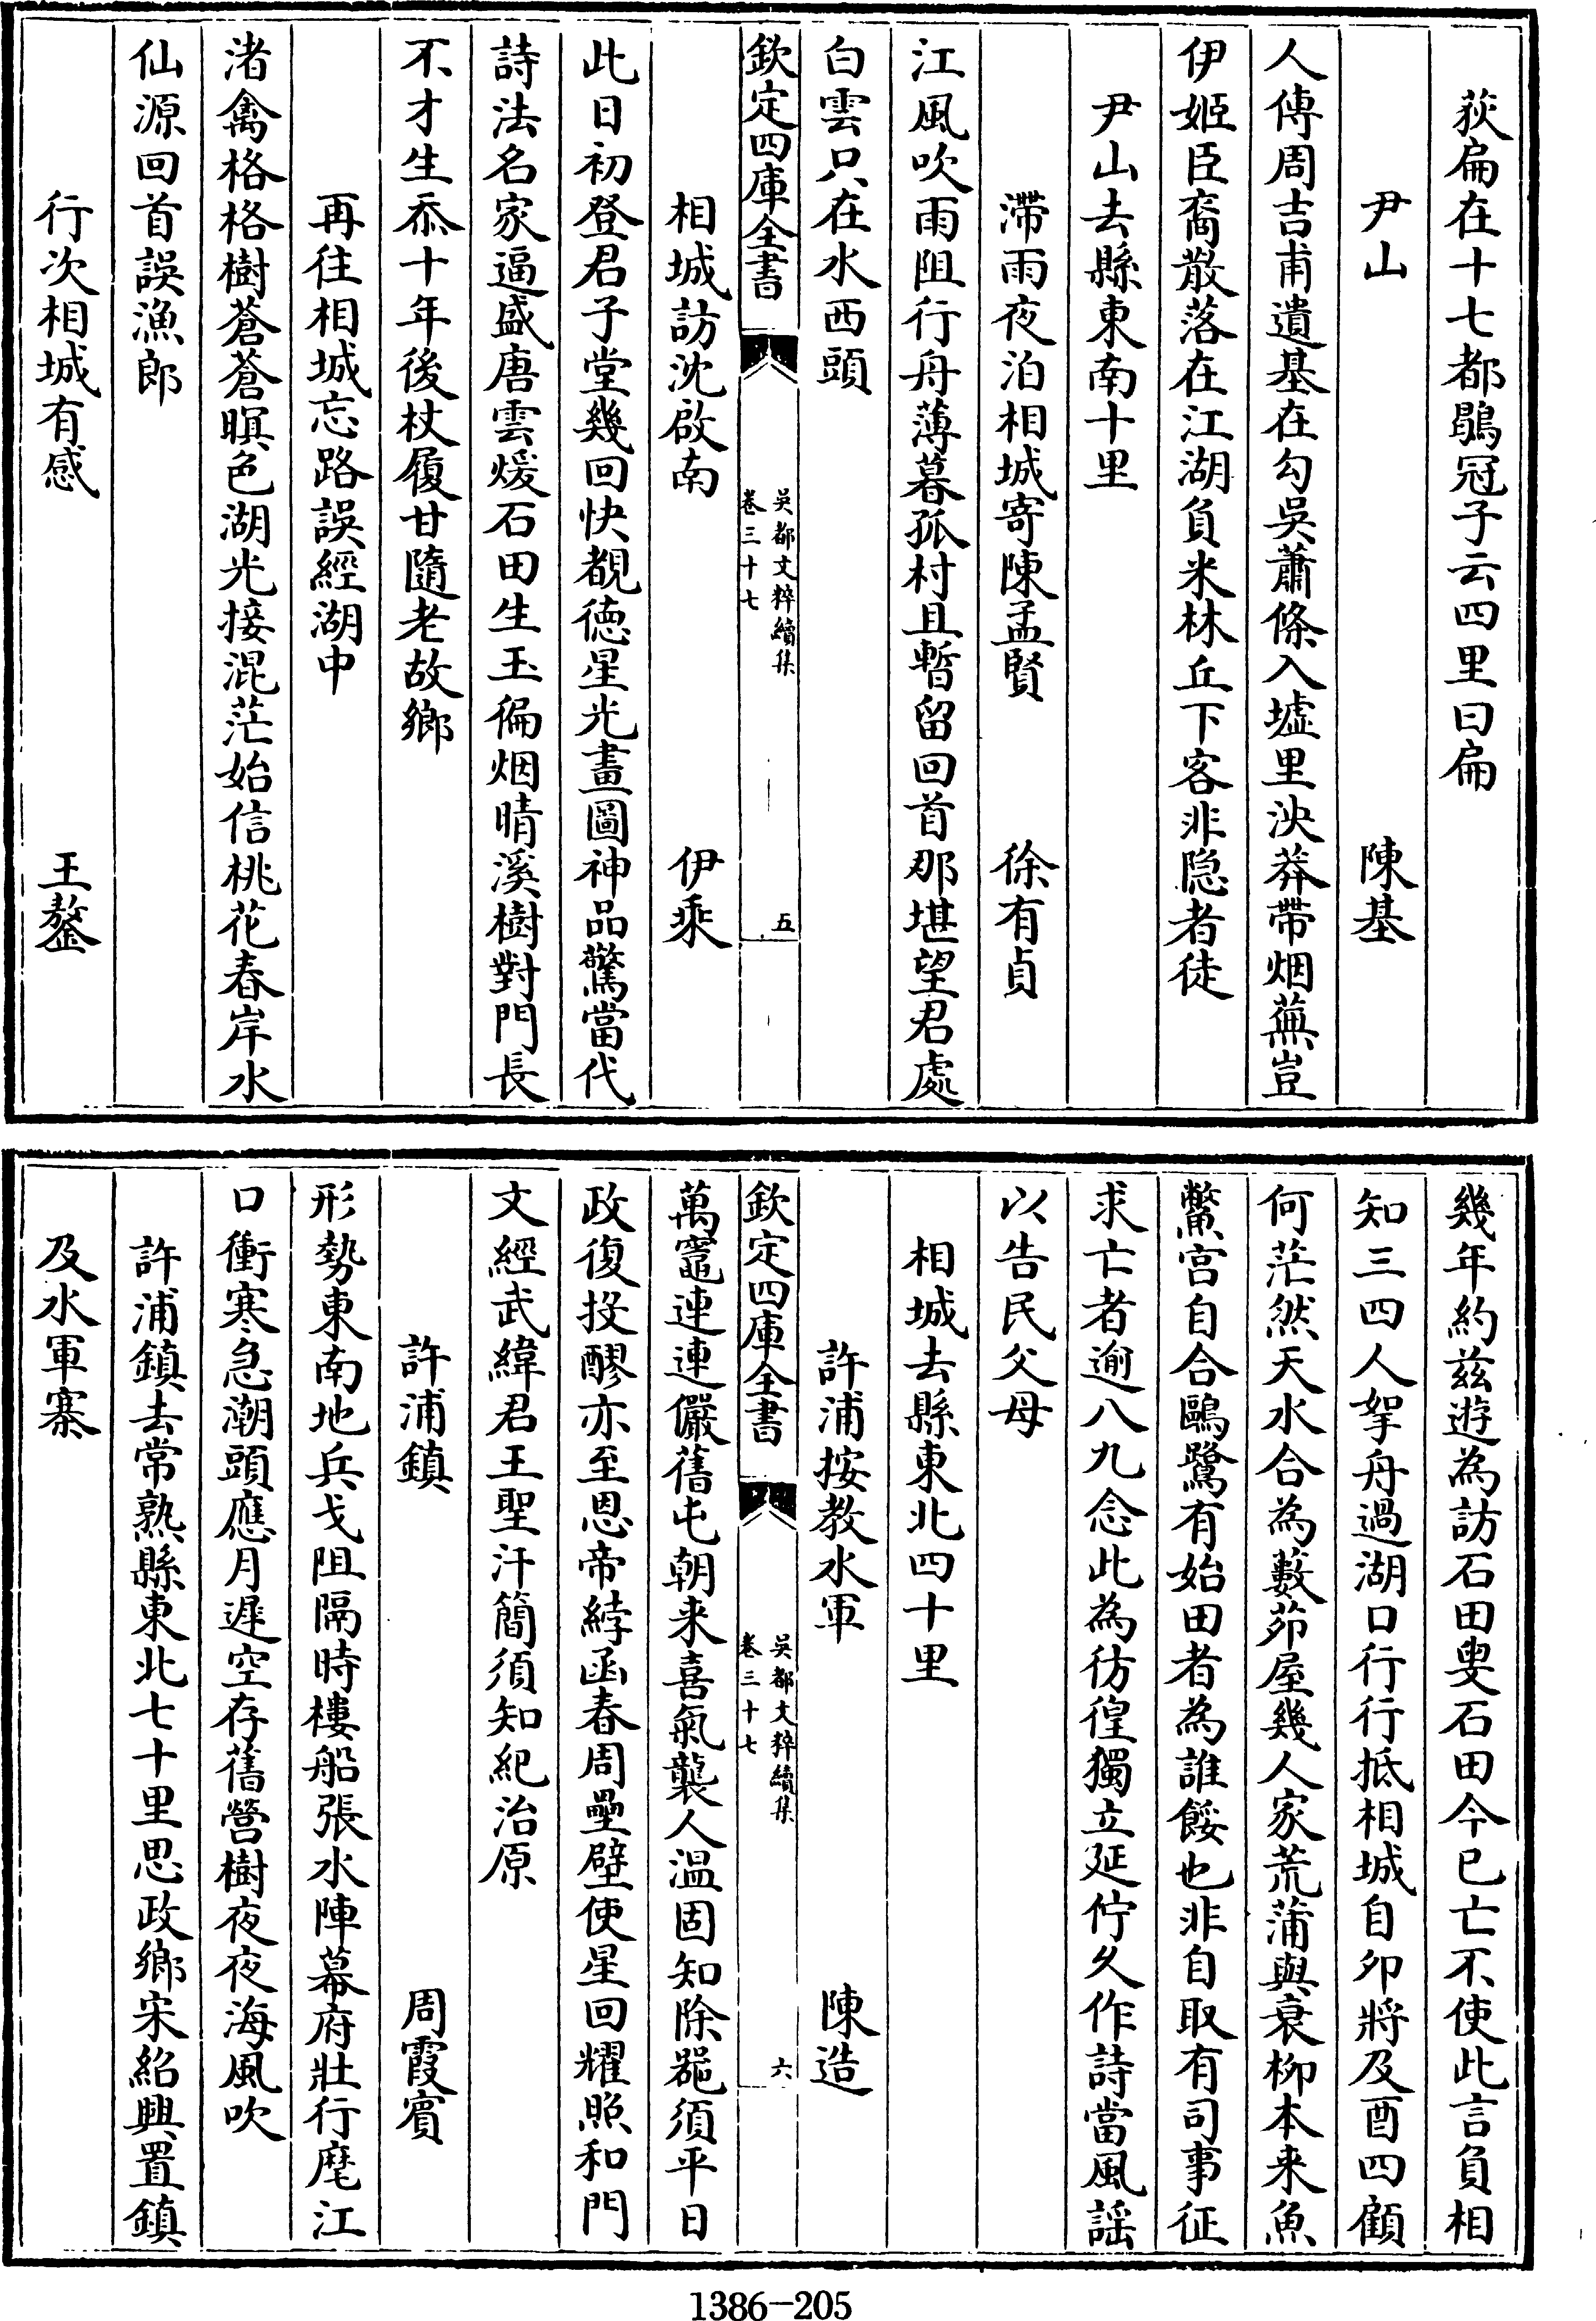 荻扁在十七都鶡冠子云四里曰扁
尹山　陳基
人傳周吉甫遺基在勾吳蕭條入墟里泱莽帶烟蕪豈
伊姬臣裔散落在江湖負米林丘下客非隐者徒
尹山去縣東南十里
滯雨夜泊相城寄陳孟賢　徐有貞
江風吹雨阻行舟薄暮孤村且暫留回首那堪望君處
白雲只在水西頭
欽定四庫全書
吳都文粹續集
卷三十七
五
相城訪沈啟南　伊乘
此日初登君子堂幾回快覩德星光畫圖神品驚當代
詩法名家逼盛唐雲煖石田生玉偏烟晴溪樹對門長
不才生忝十年後杖履甘隨老故鄉
再往相城忘路誤經湖中
渚禽格格樹蒼蒼暝色湖光接混茫始信桃花春岸水
仙源回首誤漁郎
行次相城有感　王鏊
幾年約兹遊為訪石田叟石田今已亡不使此言負相
知三四人挐舟過湖口行行抵相城自卯將及酉四顧
何茫然天水合為藪茆屋幾人家荒蒲與衰柳本来魚
鱉宫自合鷗鷺有始田者為誰餒也非自取有司事征
求亡者逾八九念此為彷徨獨立延佇久作詩當風謡
以告民父母
相城去縣東北四十里
許浦按教水軍　陳造
欽定四庫全書
吳都文粹續集
卷三十七
六
萬竈連連儼舊屯朝来喜氣襲人温固知除器須平日
政復投醪亦至恩帝綍函春周壘壁使星回耀照和門
文經武緯君王聖汗簡須知紀治原
許浦鎮　周霞賓
形勢東南地兵戈阻隔時樓船張水陣幕府壯行麾江
口衝寒急潮頭應月遲空存舊營樹夜夜海風吹
許浦鎮去常熟縣東北七十里思政鄉宋紹興置鎮
及水軍寨
1386-205